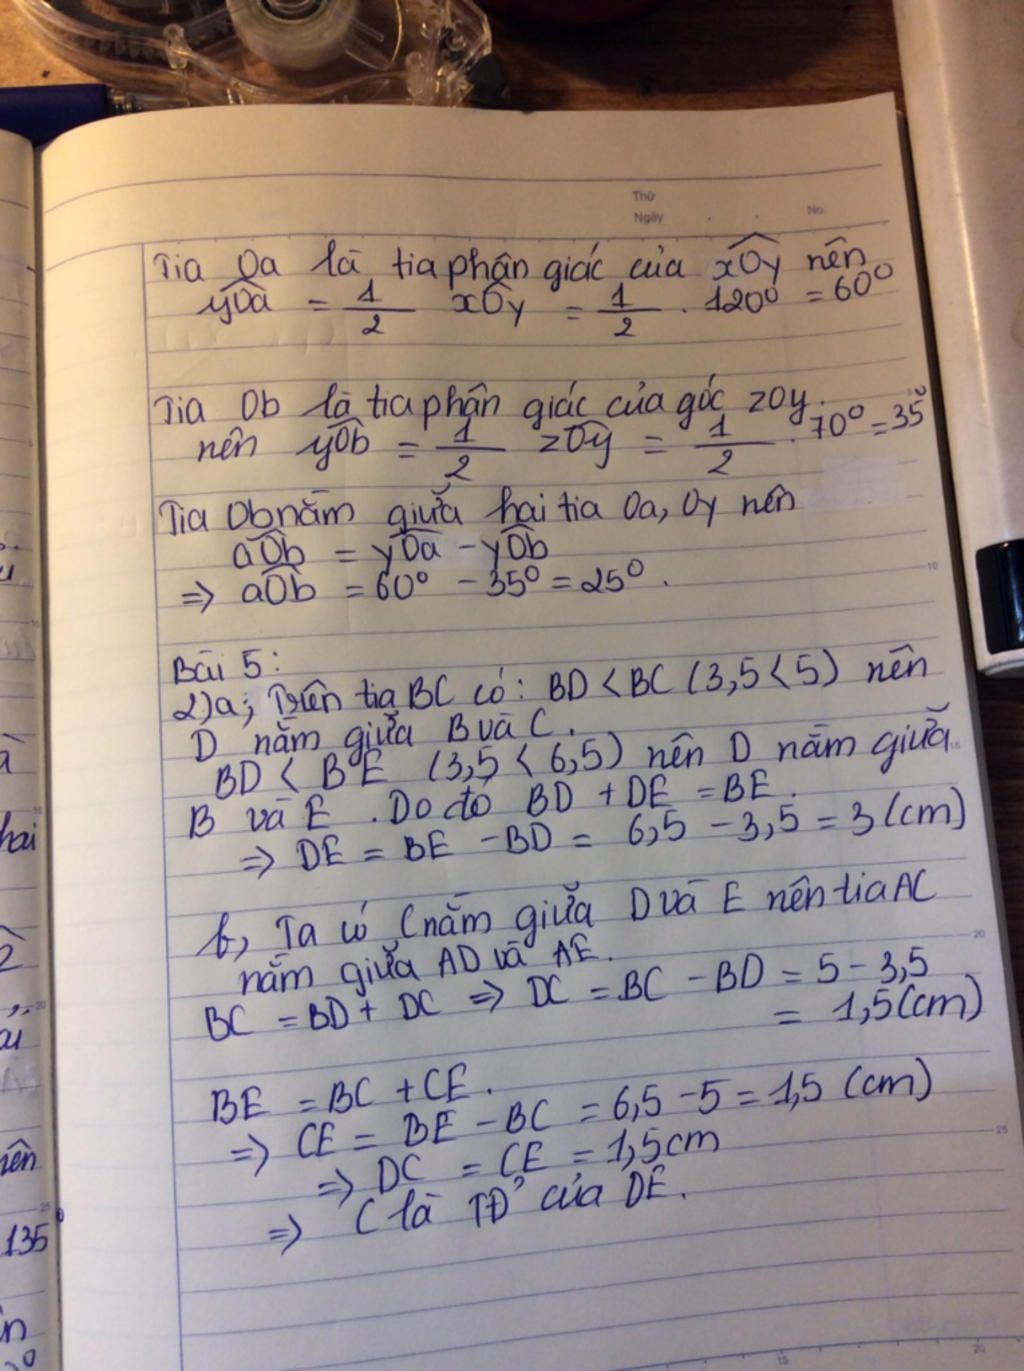 Thứ
Ngày . . No.
Tia Oa là tia phận giác của xOy nên
yOa = 1/2 xOy = 1/2 . 120° = 60°
Tia Ob là tia phận giác của góc zOy.
nên yOb = 1/2 zOy = 1/2 . 70° = 35°
Tia Ob nằm giữa hai tia Oa, Oy nên
aOb = yOa - yOb
=> aOb = 60° - 35° = 25°.
Bài 5:
2)a, Trên tia BC có: BD < BC (3,5 < 5) nên
D nằm giữa B và C.
BD < BE (3,5 < 6,5) nên D nằm giữa
B và E. Do đó BD + DE = BE.
=> DE = BE - BD = 6,5 - 3,5 = 3 (cm)
b, Ta có C nằm giữa D và E nên tia AC
nằm giữa AD và AE.
BC = BD + DC => DC = BC - BD = 5 - 3,5
= 1,5 (cm)
BE = BC + CE.
=> CE = BE - BC = 6,5 - 5 = 1,5 (cm)
=> DC = CE = 1,5cm
=> C là TĐ' của DE.
hai
2
iên
135
10
20
25
15
20